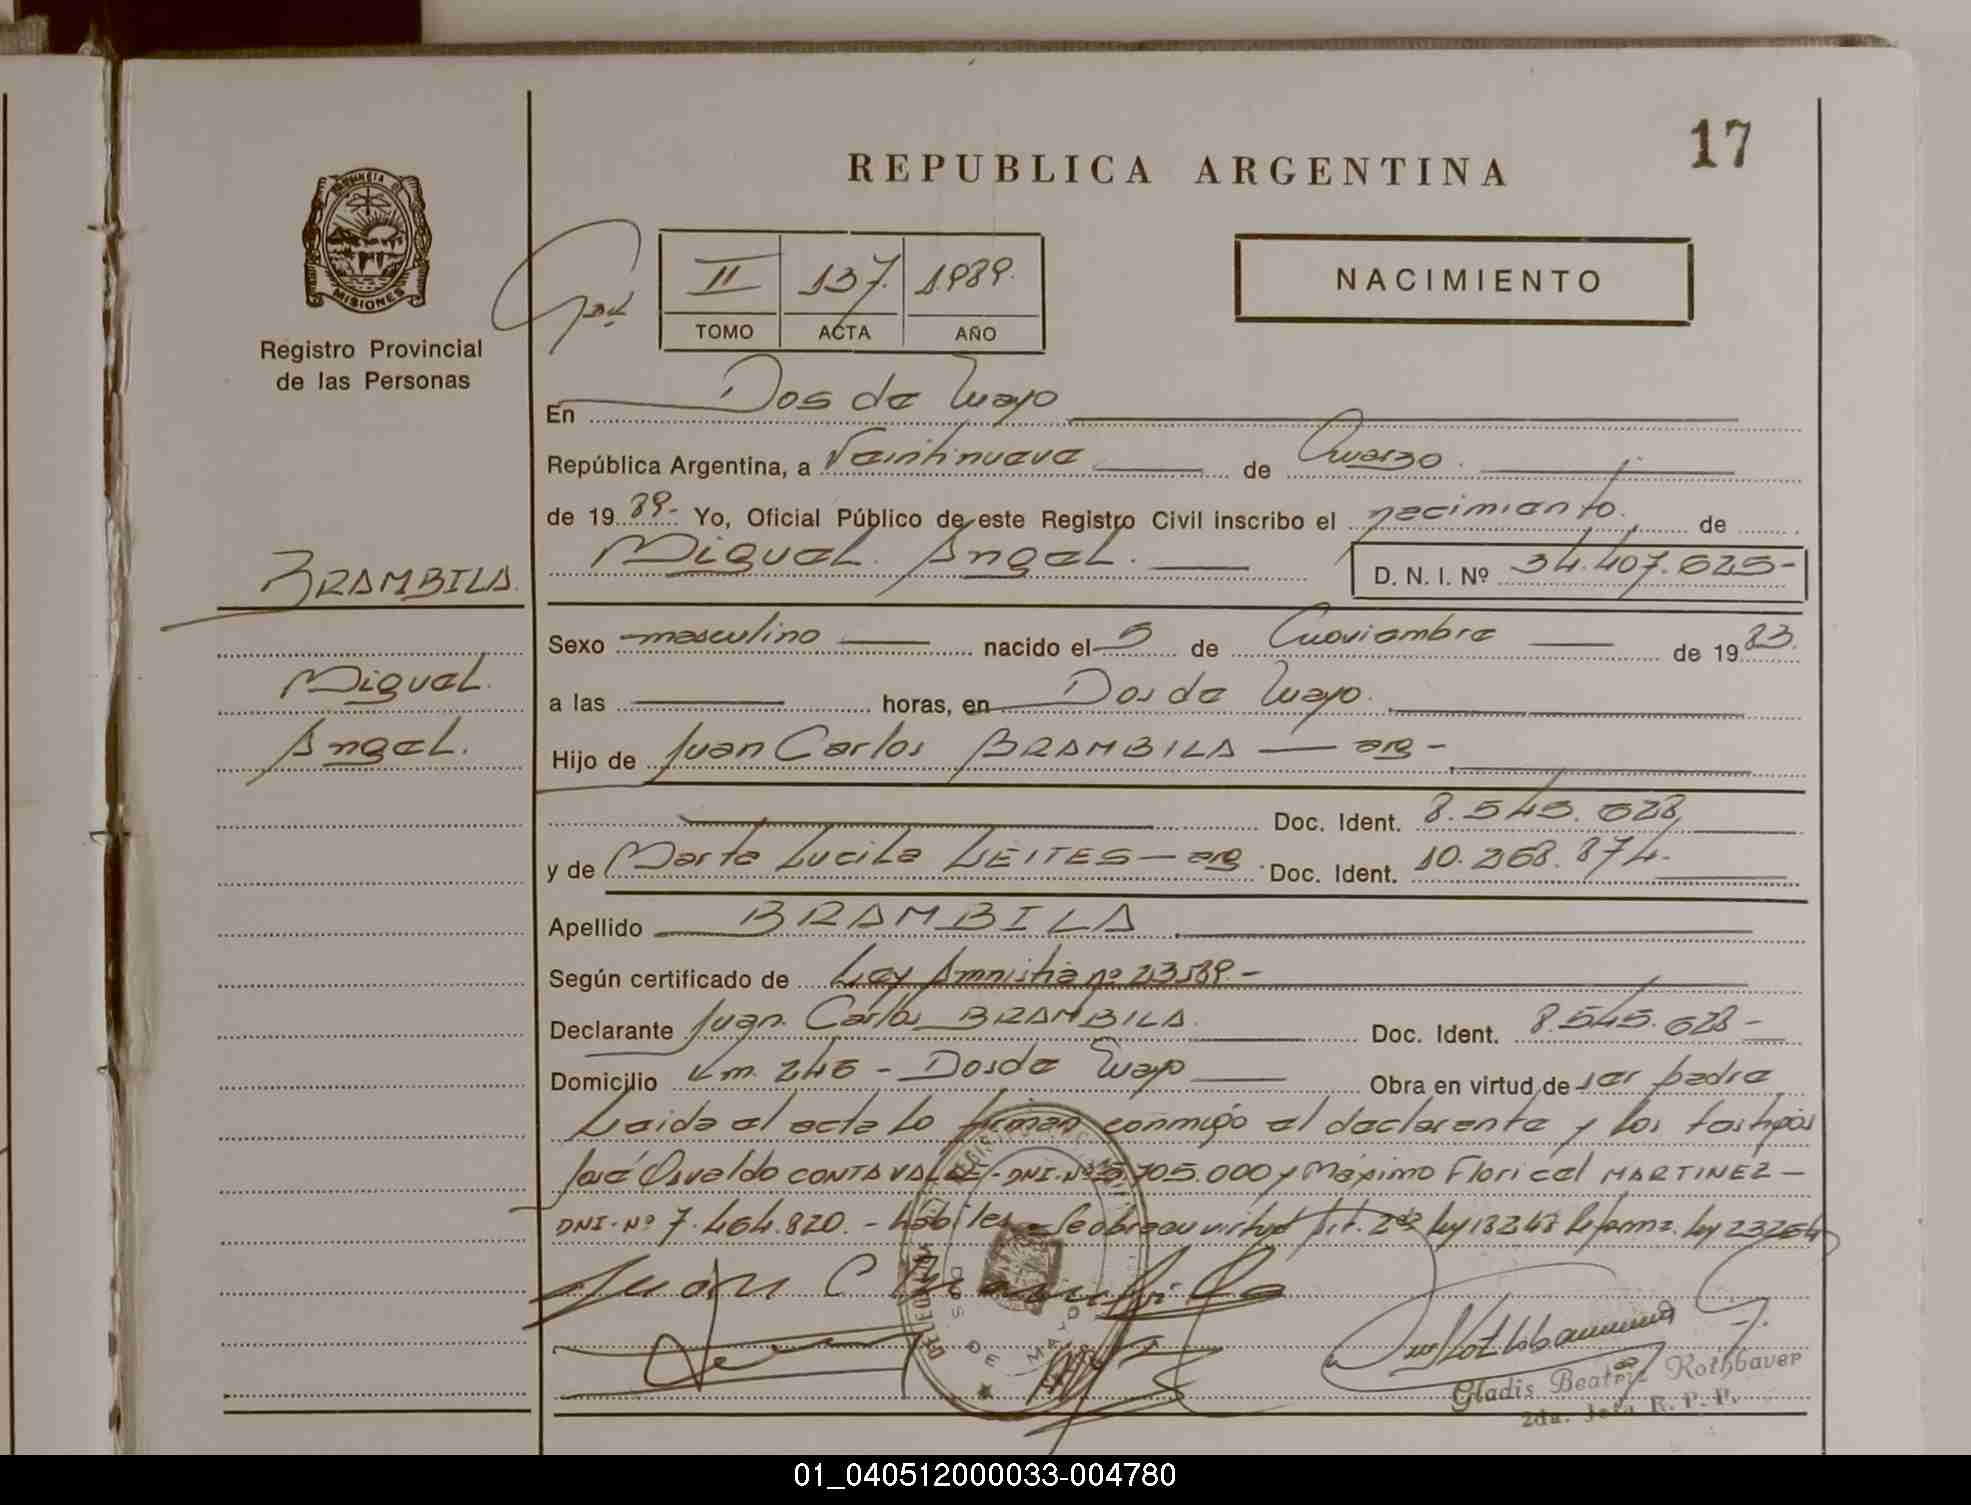 17
REPUBLICA ARGENTINA
PROVINCIA DE
MISIONES
Registro Provincial
de las Personas
II 137. 1.989.
TOMO ACTA AÑO
NACIMIENTO
En Dos de Mayo
República Argentina, a Veintinueve de Marzo.
de 1989.- Yo, Oficial Público de este Registro Civil inscribo el nacimiento. de
Miguel Angel. D. N. I. Nº 34.407.625-
BRAMBILA.
Miguel.
Angel.
Sexo masculino nacido el 5 de Noviembre de 1983.
a las horas, en Dos de Mayo.
Hijo de Juan Carlos BRAMBILA — arg -
Doc. Ident. 8.545.628
y de Marta Lucila LEITES — arg. Doc. Ident. 10.268.874.
Apellido BRAMBILA
Según certificado de Ley Amnistia nº 23589.-
Declarante Juan Carlos BRAMBILA. Doc. Ident. 8.545.628-
Domicilio Km. 245 - Dos de Mayo Obra en virtud de ser padre
Leida el acta lo firman conmigo el declarante y los testigos
José Osvaldo CONTAVALLE - DNI. Nº 5.705.000 y Máximo Floricel MARTINEZ -
DNI. Nº 7.464.820. - habiles - Se obra en virtud Art. 2º ley 18248 Reforma. ley 23264
Juan C Brambila
DOS DE MAYO
Gladis Beatriz Rothbauer
2da. Jefa R. P. P.
01_040512000033-004780